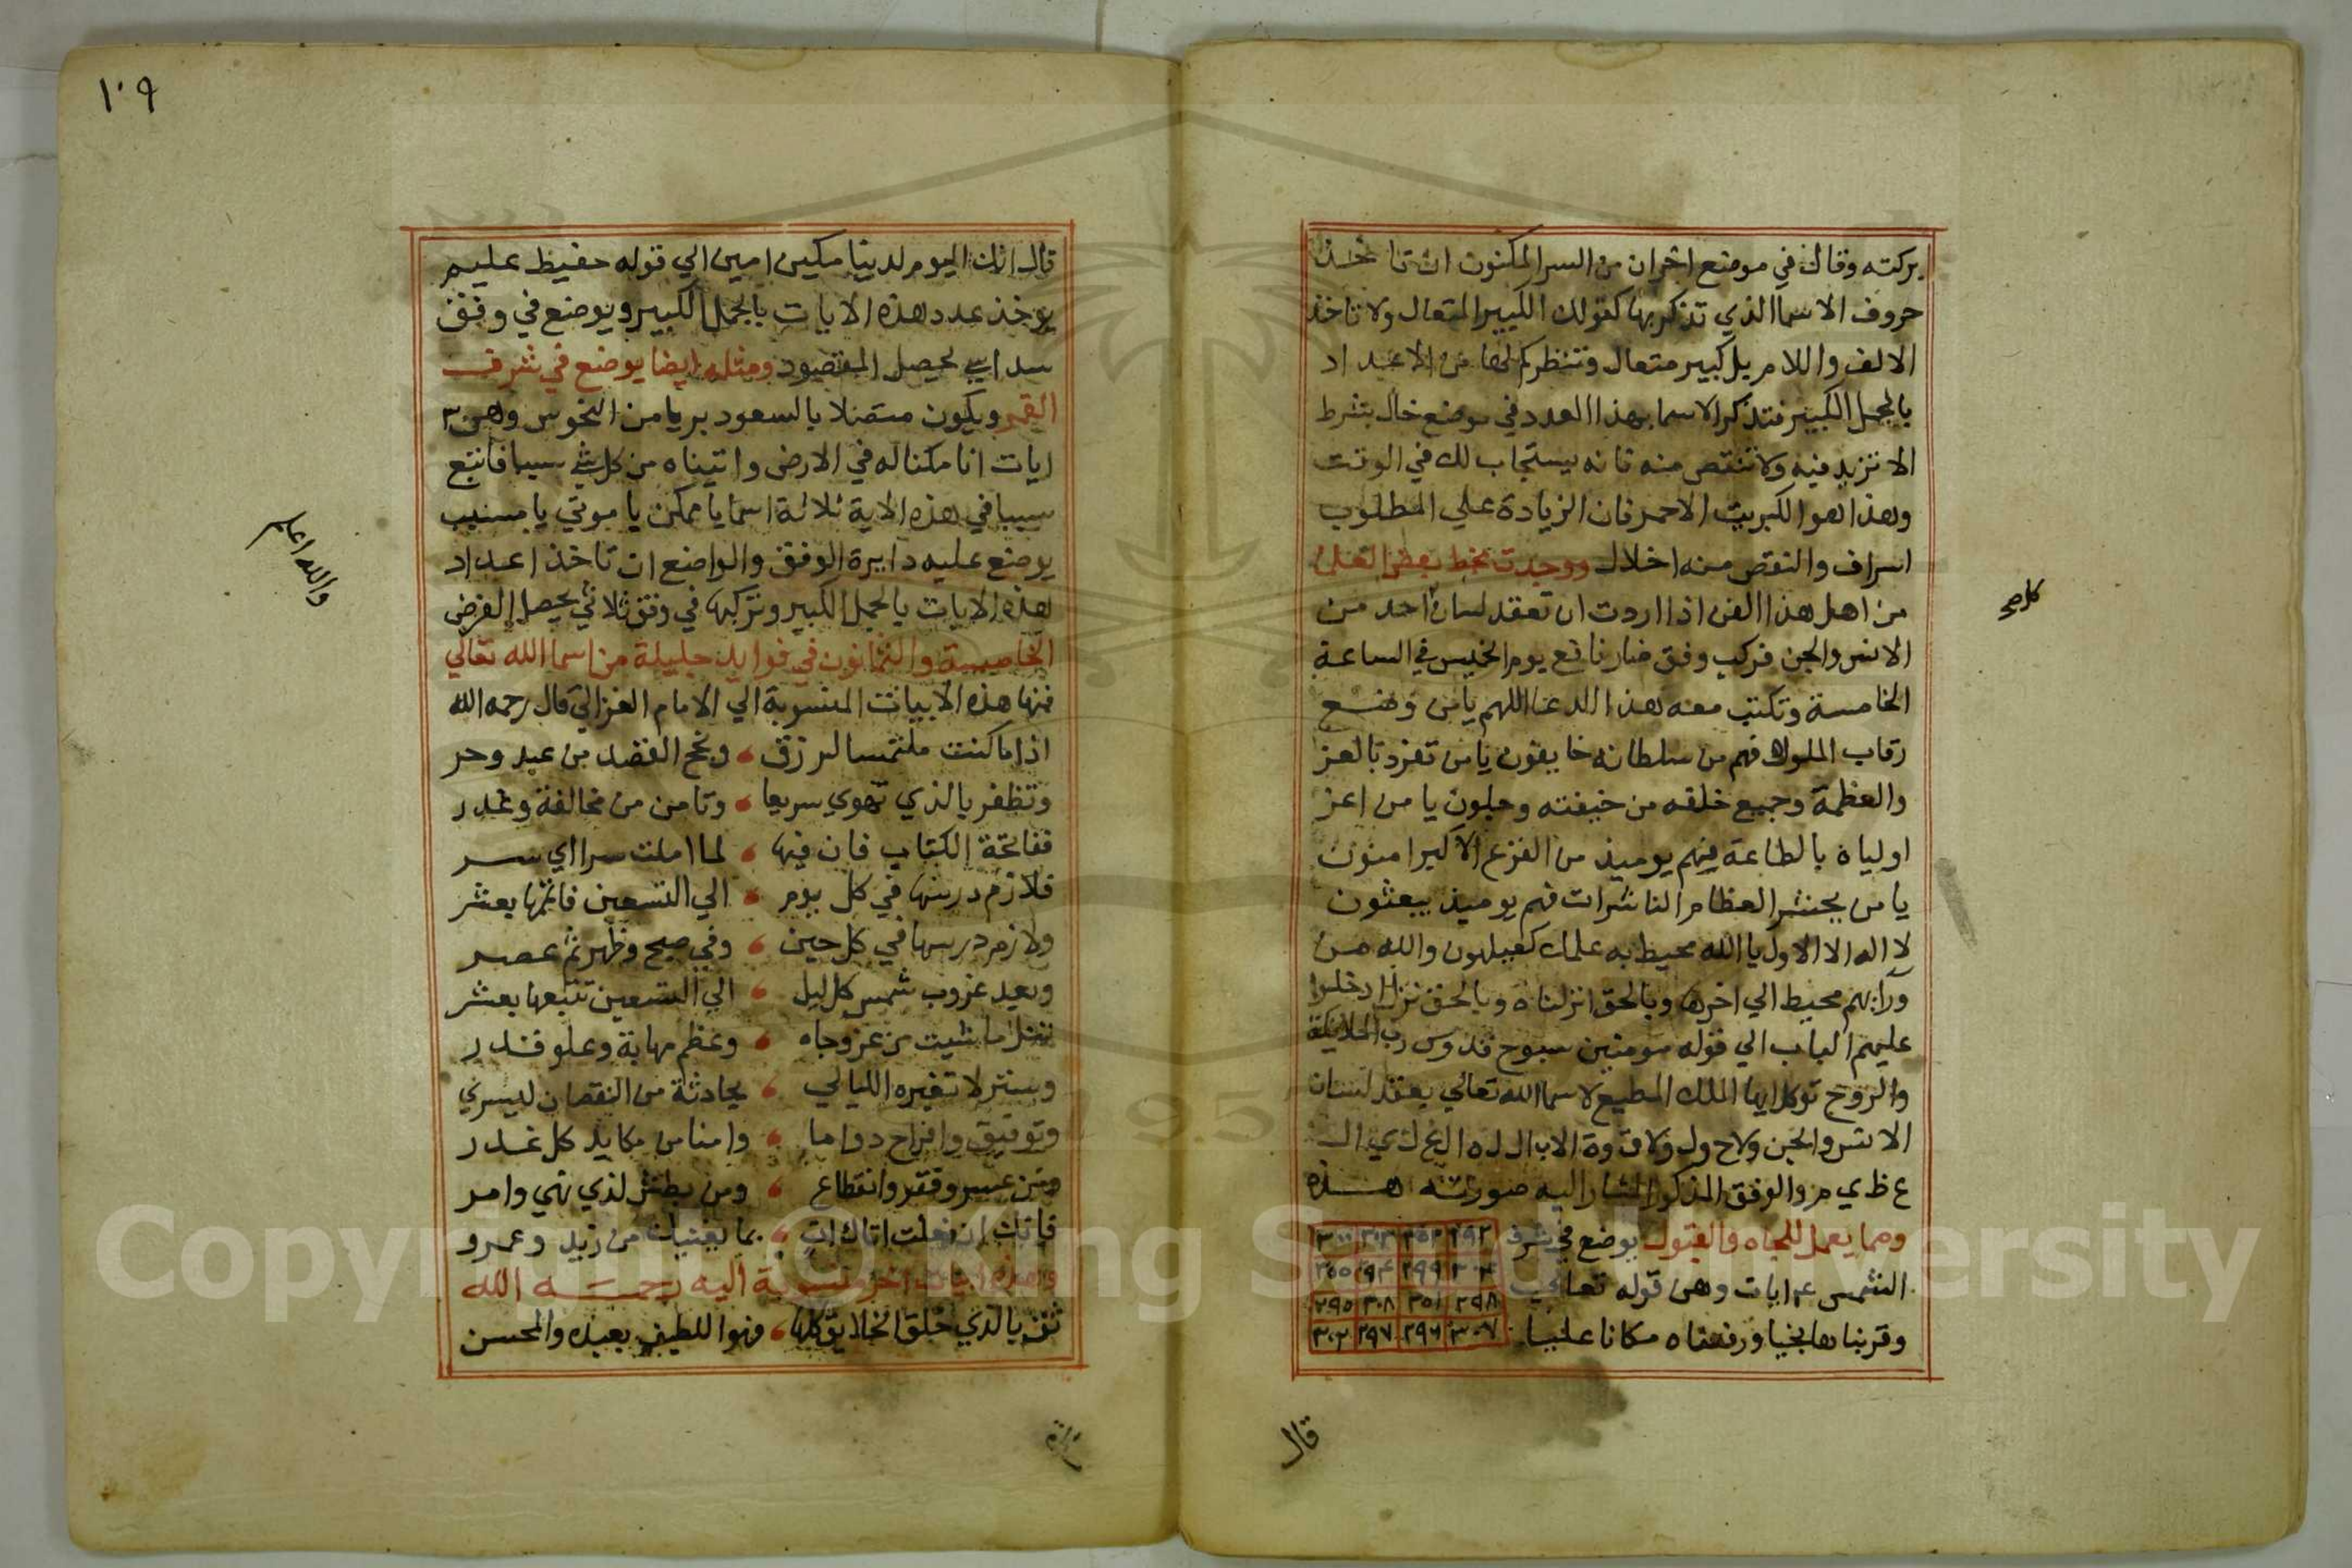 بركته وقال في موضع اخران من السر المكنون ان تاخذ
حروف الاسما الذي تذكر بها كقولك الكبير المتعال ولا تاخذ
الالف واللام بل كبير متعال وتنظر كم لها من الاعداد
بالجمل الكبير فتذكر الاسما بهذا العدد في موضع خال بشرط
الا تزيد فيه ولا تنقص منه فانه يستجاب لك في الوقت
وهذا هو الكبريت الاحمر فان الزيادة علي المطلوب
اسراف والنقص منه اخلال ووجدت بخط بعض العلماء
من اهل هذا الفن اذا اردت ان تعقد لسان احد من
الانس والجن فركب وفق ضار نافع يوم الخميس في الساعة
الخامسة وتكتب معه هذا الدعا اللهم يا من وضع
رقاب الملوك فهم من سلطانه خايفون يا من تفرد بالعز
والعظمة وجميع خلقه من خيفته وجلون يا من اعز
اولياه بالطاعة فهم يوميذ من الفزع الاكبر امنون
يا من يحشر العظام الناشرات فهم يوميذ يبعثون
لا اله الا الاول يا الله محيط به علمك كعهلهون والله من
ورايهم محيط الي اخرها وبالحق انزلناه وبالحق نزل ادخلوا
عليهم الباب الي قوله مومنين سبوح قدوس رب الملايكة
والروح توكل ايها الملك المطيع لاسما الله تعالي بعقد لسان
الانس والجن ولا ح ول ولا ق وة الا ب ال ل ه ال ع ل ي ال
ع ظ ي م والوفق المذكور المشار اليه صورته هذه
ومما يعمل للجاه والقبول يوضع في شرف
الشمس ٤ ايات وهي قوله تعا
وقربناه نجيا ورفعناه مكانا عليا
٢٩٢ ٣٥٣ ٣١٣ ٣١١
٣٠٤ ٢٩٩ ٢٩٤ ٣٥٥
٢٩٨ ٣٥١ ٣٠٨ ٢٩٥
٣٠٧ ٢٩٦ ٢٩٧ ٣٠٢
صح
قال
١٠٩
قال انك اليوم لدينا مكين امين الي قوله حفيظ عليم
يوخذ عدد هذه الايات بالجمل الكبير ويوضع في وفق
سداسي يحصل المقصود ومثله ايضا يوضع في شرف
القمر ويكون متصلا بالسعود بريا من النحوس وهي ٣
ايات انا مكنا له في الارض واتيناه من كل شي سببا فاتبع
سببا في هذه الاية ثلاثة اسما يا ممكن يا موتي يا مسبب
يوضع عليه دايرة الوفق والواضع ان تاخذ اعداد
هذه الايات بالجمل الكبير وتركبها في وفق ثلاثي يحصل الغرض
الخامسة والثمانون في فوايد جليلة من اسما الله تعالي
فمنها هذه الابيات المنسوبة الي الامام الغزالي قال رحمه الله
اذا ما كنت ملتمسا لرزق ، ونجح القصد من عبد وحر
وتظفر بالذي تهوي سريعا ، وتامن من مخالفة وغدر
ففاتحة الكتاب فان فيها ، لما املت سرا اي سر
فلازم درسها في كل يوم ، الي التسعين فاتمها بعشر
ولازم درسها في كل حين ، وفي صبح وظهر ثم عصر
وبعد غروب شمس كل ليل ، الي التسعين تتبعها بعشر
تنل ما شيت من عز وجاه ، وعظم مهابة وعلو قدر
وستر لا تغيره الليالي ، بحادثة من النقصان ليسري
وتوفيق وافراح دواما ، وامنا من مكايد كل غدر
ومن عسر وفقر وانقطاع ، ومن بطش لذي نهي وامر
فانك ان فعلت اتاك ات ، بما يغنيك من زيد وعمرو
وهذه ابيات اخر منسوبة اليه رحمه الله
ثق بالذي خلق الخلايق كلها ، وهو اللطيف بعبده والمحسن
والله اعلم
Copyright © King Saud University